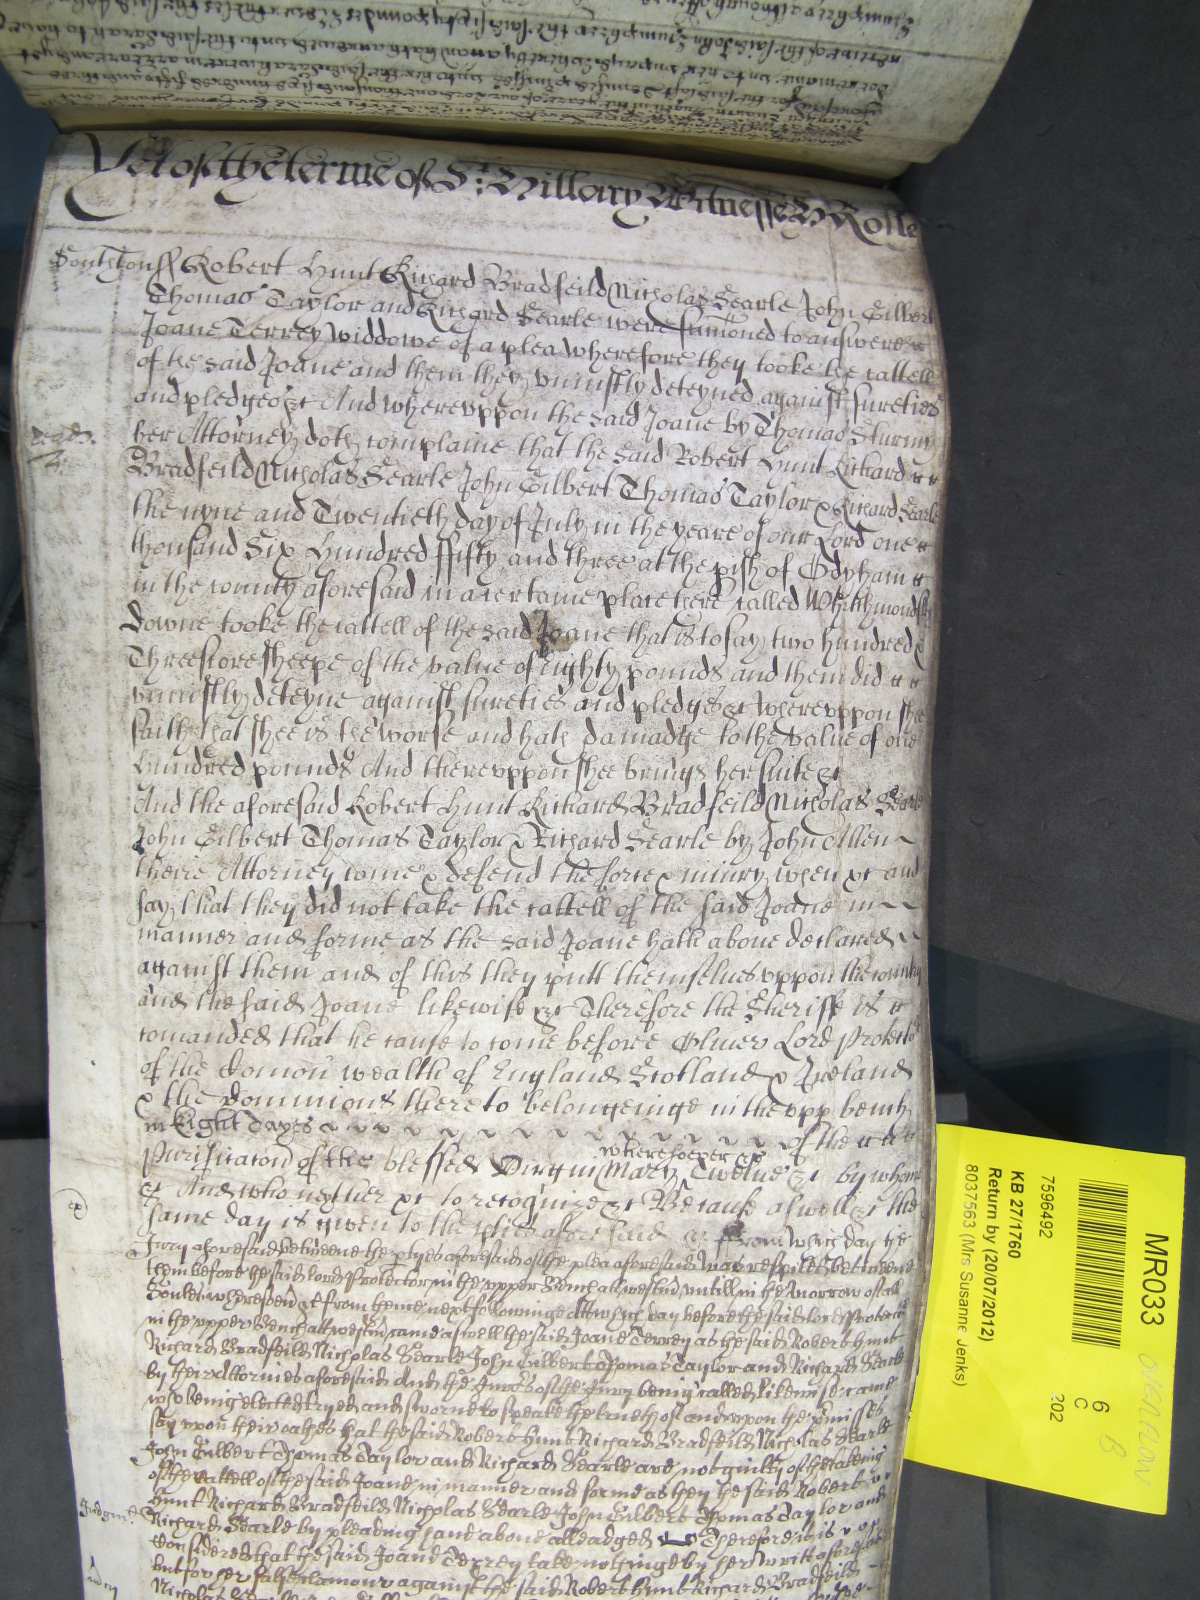 Yet of the terme of St. Hillary Witnesse H Rolle
Southton ss Robert Hunt Richard Bradfeild Nicholas Searle John Gilbert
Thomas Taylor and Richard Searle were sumoned to answere
Joane Terrey widdowe of a plea wherefore they tooke the cattell
of the said Joane and them they uniustly deteyned against sureties
and pledges &c And whereuppon the said Joane by Thomas Sturmy
her Attorney doth complaine that the said Robert Hunt Richard
Bradfeild Nicholas Searle John Gilbert Thomas Taylor & Richard Searle
the nyne and Twentieth day of July in the yeare of our Lord one
thousand Six Hundred ffifty and three at the pish of Odyham
in the county aforesaid in a certaine place there called
downe tooke the cattell of the said Joane that is to say two hundred &
Threescore sheepe of the value of eighty pounds and them did
uniustly deteyne against sureties and pledges &c whereuppon shee
saith that shee is the worse and hath damadge to the value of one
Hundred pounds And thereuppon shee brings her suite &c
And the aforesaid Robert Hunt Richard Bradfeild Nicholas Searle
John Gilbert Thomas Taylor & Richard Searle by John Allen
theire Attorney come & defend the force & iniury when &c and
say that they did not take the cattell of the said Joane in
manner and forme as the said Joane hath above declared
against them and of this they putt themselves uppon the country
and the said Joane likewise &c Therefore the Sheriff is
comanded that he cause to come before Oliver Lord Protector
of the Comon wealth of England Scotland & Ireland
& the dominions thereto belongeinge in the upp bench
in Eight dayes of the
wheresoever &c
Purificacon of the blessed Virgin Mary Twelve &c by whome
&c And who neither &c to recognize &c Because aswell &c the
same day is given to the pties aforesaid &c From which day the
Jury aforesaid betweene the ptyes aforesaid of the plea aforesaid was respited betweene
them before the said lord Protector in the upper Bench att westm untill in the morrow of all
Soules wheresoever &c from thence next followinge Att which day before the said lord Protector
in the upper Bench att westm came aswell the said Joane Terrey as the said Robert Hunt
Richard Bradfeild Nicholas Searle John Gilbert Thomas Taylor and Richard Searle
by their Attornies aforesaid And the Jurors of the Jury being called likewise came
who being elected tryed and sworne to speake the trueth of and upon the pmisses
say upon their oathes that the said Robert Hunt Richard Bradfeild Nicholas Searle
John Gilbert Thomas Taylor and Richard Searle are not guilty of the takeing
of the cattell of the said Joane in manner and forme as they the said Robert
Hunt Richard Bradfeild Nicholas Searle John Gilbert Thomas Taylor and
Judgmt.
Richard Searle by pleading have above alleadged Therefore it is
considered that the said Joane Terrey take nothinge by her writt aforesaid
but for her false clamour against the said Robert Hunt Richard Bradfeild
MR033
6
C
202
7596492
KB 27/1760
Return by (20/07/2012)
8037563 (Mrs Susanne Jenks)